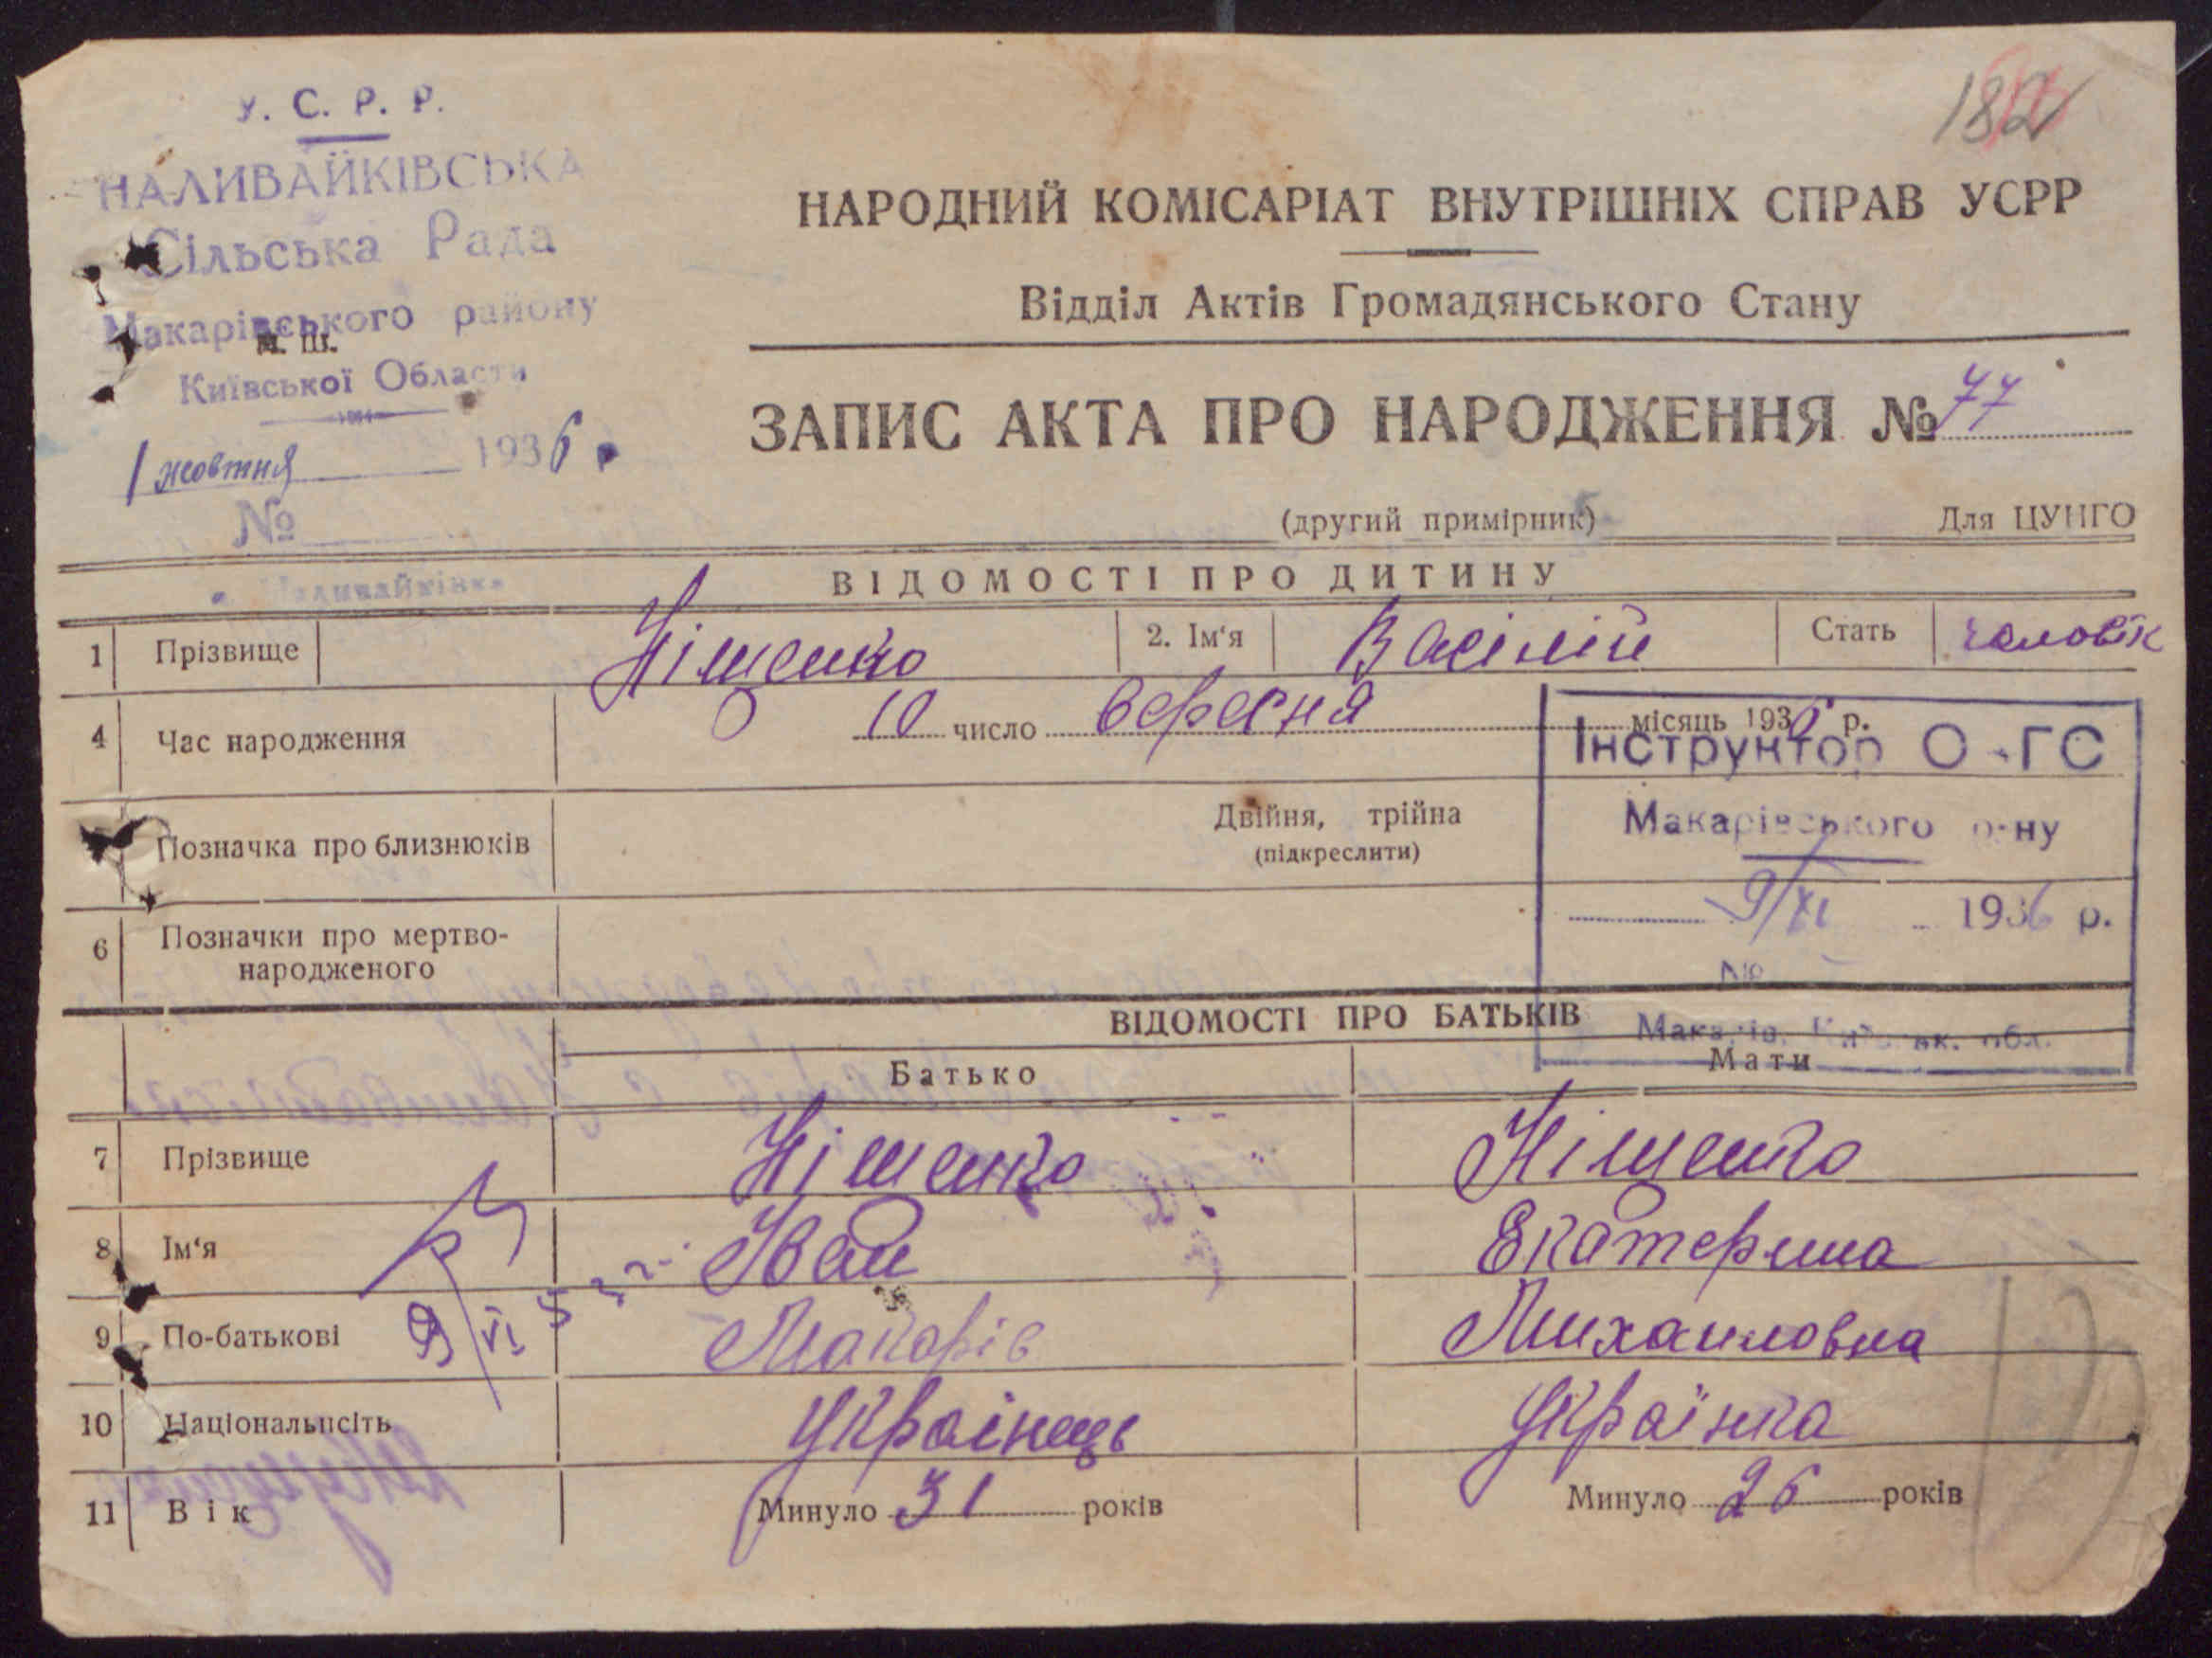 182
У. С. Р. Р.
НАЛИВАЙКІВСЬКА
Сільська Рада
Макарівського району
м. ш.
Київської Области
1 жовтня 1936 р.
№
НАРОДНИЙ КОМІСАРІАТ ВНУТРІШНІХ СПРАВ УСРР
Відділ Актів Громадянського Стану
ЗАПИС АКТА ПРО НАРОДЖЕННЯ № 77
(другий примірник) Для ЦУНГО
с. Наливайківка
ВІДОМОСТІ ПРО ДИТИНУ
1 Прізвище Ніщенко 2. Ім'я Васілій Стать чоловік
4 Час народження 10 число вересня місяць 1936 р.
Інструктор О АГС
Позначка про близнюків Двійня, трійна
(підкреслити)
Макарівського р-ну
9/XI 1936 р.
6 Позначки про мертво-
народженого
№
ВІДОМОСТІ ПРО БАТЬКІВ
Макарів, Київськ. обл.
Батько Мати
7 Прізвище Ніщенко Ніщенко
8 Ім'я Іван Екатерина
9 По-батькові Макорів Михаиловна
10 Національність Украінець Українка
11 Вік Минуло 31 років Минуло 26 років